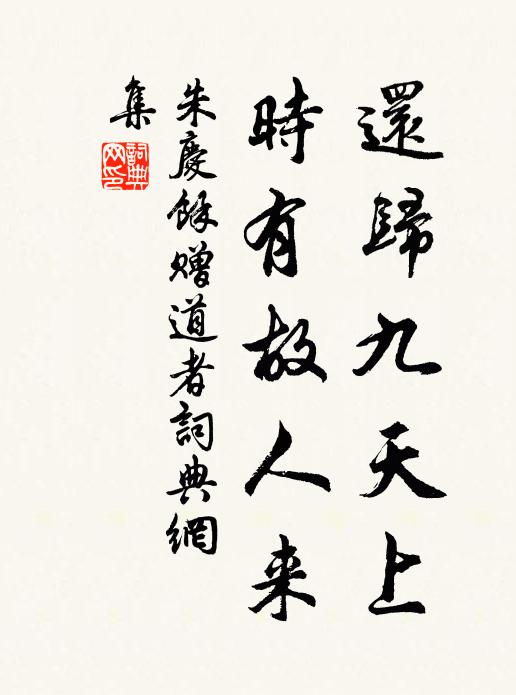 還歸九天上
時有故人来
朱慶餘贈道者詞典網
集
詞典
网印